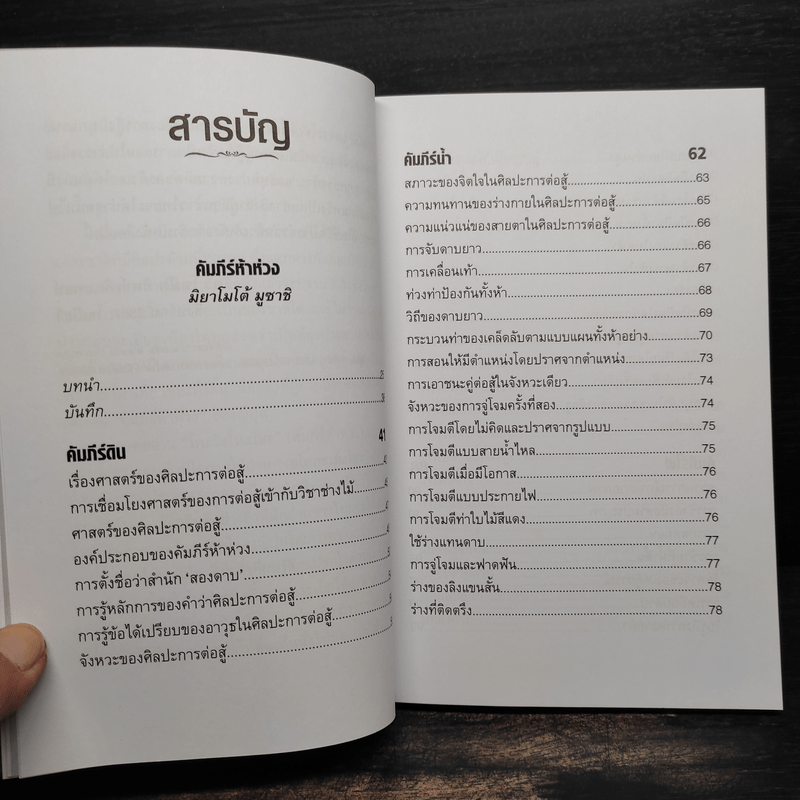 สารบัญ
คัมภีร์ห้าห่วง
มิยาโมโต้ มูซาชิ
บทนำ
บันทึก
คัมภีร์ดิน 41
เรื่องศาสตร์ของศิลปะการต่อสู้
การเชื่อมโยงศาสตร์ของการต่อสู้เข้ากับวิชาช่างไม้
ศาสตร์ของศิลปะการต่อสู้
องค์ประกอบของคัมภีร์ห้าห่วง
การตั้งชื่อว่าสำนัก ‘สองดาบ’
การรู้หลักการของคำว่าศิลปะการต่อสู้
การรู้ข้อได้เปรียบของอาวุธในศิลปะการต่อสู้
จังหวะของศิลปะการต่อสู้
คัมภีร์น้ำ 62
สภาวะของจิตใจในศิลปะการต่อสู้ 63
ความทนทานของร่างกายในศิลปะการต่อสู้ 65
ความแน่วแน่ของสายตาในศิลปะการต่อสู้ 66
การจับดาบยาว 66
การเคลื่อนเท้า 67
ท่วงท่าป้องกันทั้งห้า 68
วิถีของดาบยาว 69
กระบวนท่าของเคล็ดลับตามแบบแผนทั้งห้าอย่าง 70
การสอนให้มีตำแหน่งโดยปราศจากตำแหน่ง 73
การเอาชนะคู่ต่อสู้ในจังหวะเดียว 74
จังหวะของการจู่โจมครั้งที่สอง 74
การโจมตีโดยไม่คิดและปราศจากรูปแบบ 75
การโจมตีแบบสายน้ำไหล 75
การโจมตีเมื่อมีโอกาส 76
การโจมตีแบบประกายไฟ 76
การโจมตีท่าใบไม้สีแดง 76
ใช้ร่างแทนดาบ 77
การจู่โจมและฟาดฟัน 77
ร่างของลิงแขนสั้น 78
ร่างที่ติดตรึง 78